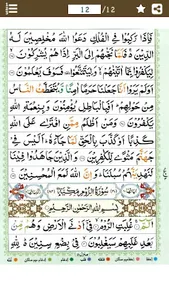 12 /12
فَاِذَا رَكِبُوْا فِي الْفُلْكِ دَعَوُا اللّٰهَ مُخْلِصِيْنَ لَهُ
الدِّيْنَ فَلَمَّا نَجّٰىهُمْ اِلَى الْبَرِّ اِذَا هُمْ يُشْرِكُوْنَ
لِيَكْفُرُوْا بِمَآ اٰتَيْنٰهُمْ وَلِيَتَمَتَّعُوْا فَسَوْفَ يَعْلَمُوْنَ
اَوَلَمْ يَرَوْا اَنَّا جَعَلْنَا حَرَمًا اٰمِنًا وَّيُتَخَطَّفُ النَّاسُ
مِنْ حَوْلِهِمْ اَفَبِالْبَاطِلِ يُؤْمِنُوْنَ وَبِنِعْمَةِ اللّٰهِ
يَكْفُرُوْنَ وَمَنْ اَظْلَمُ مِمَّنِ افْتَرٰى عَلَى اللّٰهِ
كَذِبًا اَوْ كَذَّبَ بِالْحَقِّ لَمَّا جَآءَهٗ اَلَيْسَ فِيْ
جَهَنَّمَ مَثْوًى لِّلْكٰفِرِيْنَ وَالَّذِيْنَ جَاهَدُوْا فِيْنَا
لَنَهْدِيَنَّهُمْ سُبُلَنَا وَاِنَّ اللّٰهَ لَمَعَ الْمُحْسِنِيْنَ
سُوْرَةُ الرُّوْمِ مَكِّيَّةٌ
بِسْمِ اللّٰهِ الرَّحْمٰنِ الرَّحِيْمِ
الٓمّٓ غُلِبَتِ الرُّوْمُ فِيْٓ اَدْنَى الْاَرْضِ وَهُمْ مِّنْۢ
بَعْدِ غَلَبِهِمْ سَيَغْلِبُوْنَ فِيْ بِضْعِ سِنِيْنَ لِلّٰهِ